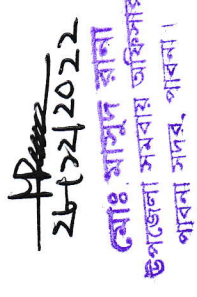 ২৮/১২/২০২২
মোঃ মাসুদ রানা
উপজেলা সমবায় অফিসার
পাবনা সদর, পাবনা।